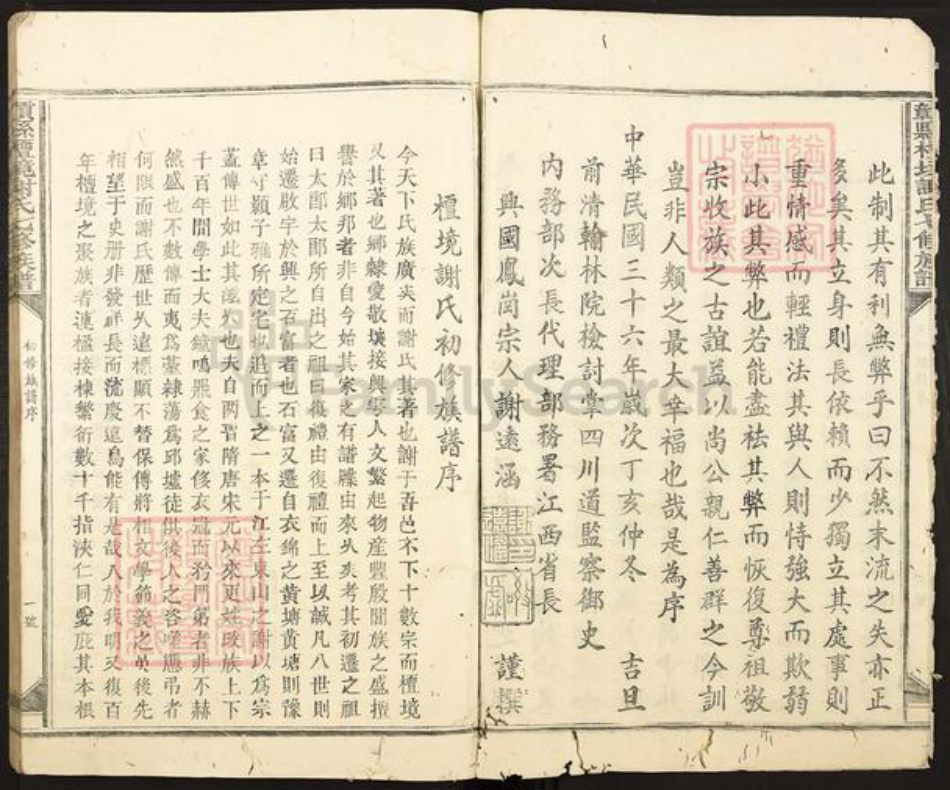 此制其有利無弊乎曰不然末流之失亦正
多矣其立身則長依賴而少獨立其處事則
重情感而輕禮法其與人則恃強大而欺弱
小此其弊也若能盡袪其弊而恢復尊祖敬
宗收族之古誼益以尚公親仁善群之今訓
豈非人類之最大幸福也哉是為序
中華民國三十六年歲次丁亥仲冬 吉旦
前清翰林院檢討掌四川道監察御史
內務部次長代理部務署江西省長
興國鳳崗宗人謝遠涵 謹撰
檀境謝氏初修族譜序
今天下氏族廣矣而謝氏其著也謝于吾邑不下十數宗而檀境
又其著也鄉隸愛敬壤接興雩人文繁起物產豐殷閭族之盛擅
譽於鄉邦者非自今始其家之有譜牒由來久矣考其初遷之祖
曰太郎太郎所自出之祖曰復禮由復禮而上至以誠凡八世則
始遷啟宇於興之石富者也石富又遷自衣錦之黃塘黃塘則豫
章守顥子雅所定宅也追而上之一本于江左東山之謝以為宗
蓋傳世如此其遠久也夫自兩晉隋唐宋元以來更姓改族上下
千百年間學士大夫鐘鳴鼎食之家侈衣冠而矜門第者非不赫
然盛也不數傳而夷為臺隸蕩為邱墟徒供後人之咨嗟憑弔者
何限而謝氏歷世久遠標顯不替保傳將相文學節義之英後先
相望于史册非發祥長而流慶遠烏能有是哉入於我明又復百
年檀境之聚族者連楹接棟繁衍數十千指浹仁同愛庇其本根
檀境謝氏七修族譜
初修族譜序
一號
FamilySearch